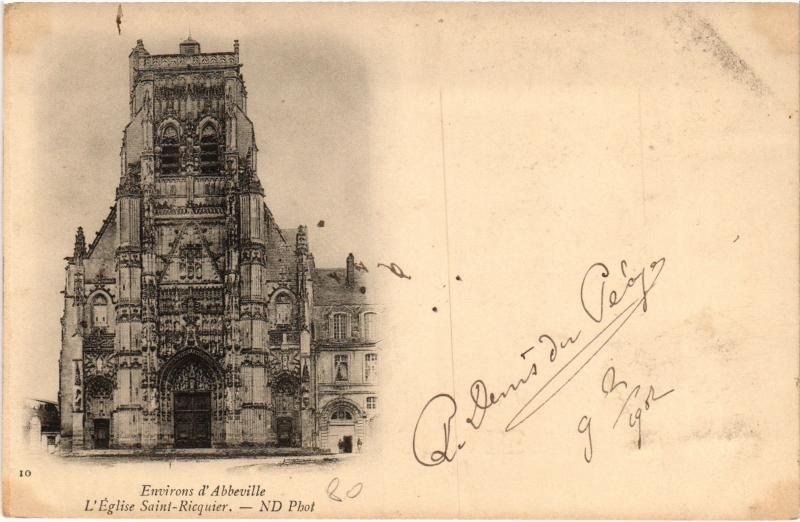 10
Environs d'Abbeville
L'Église Saint-Ricquier. — ND Phot
80
Denis du
1902